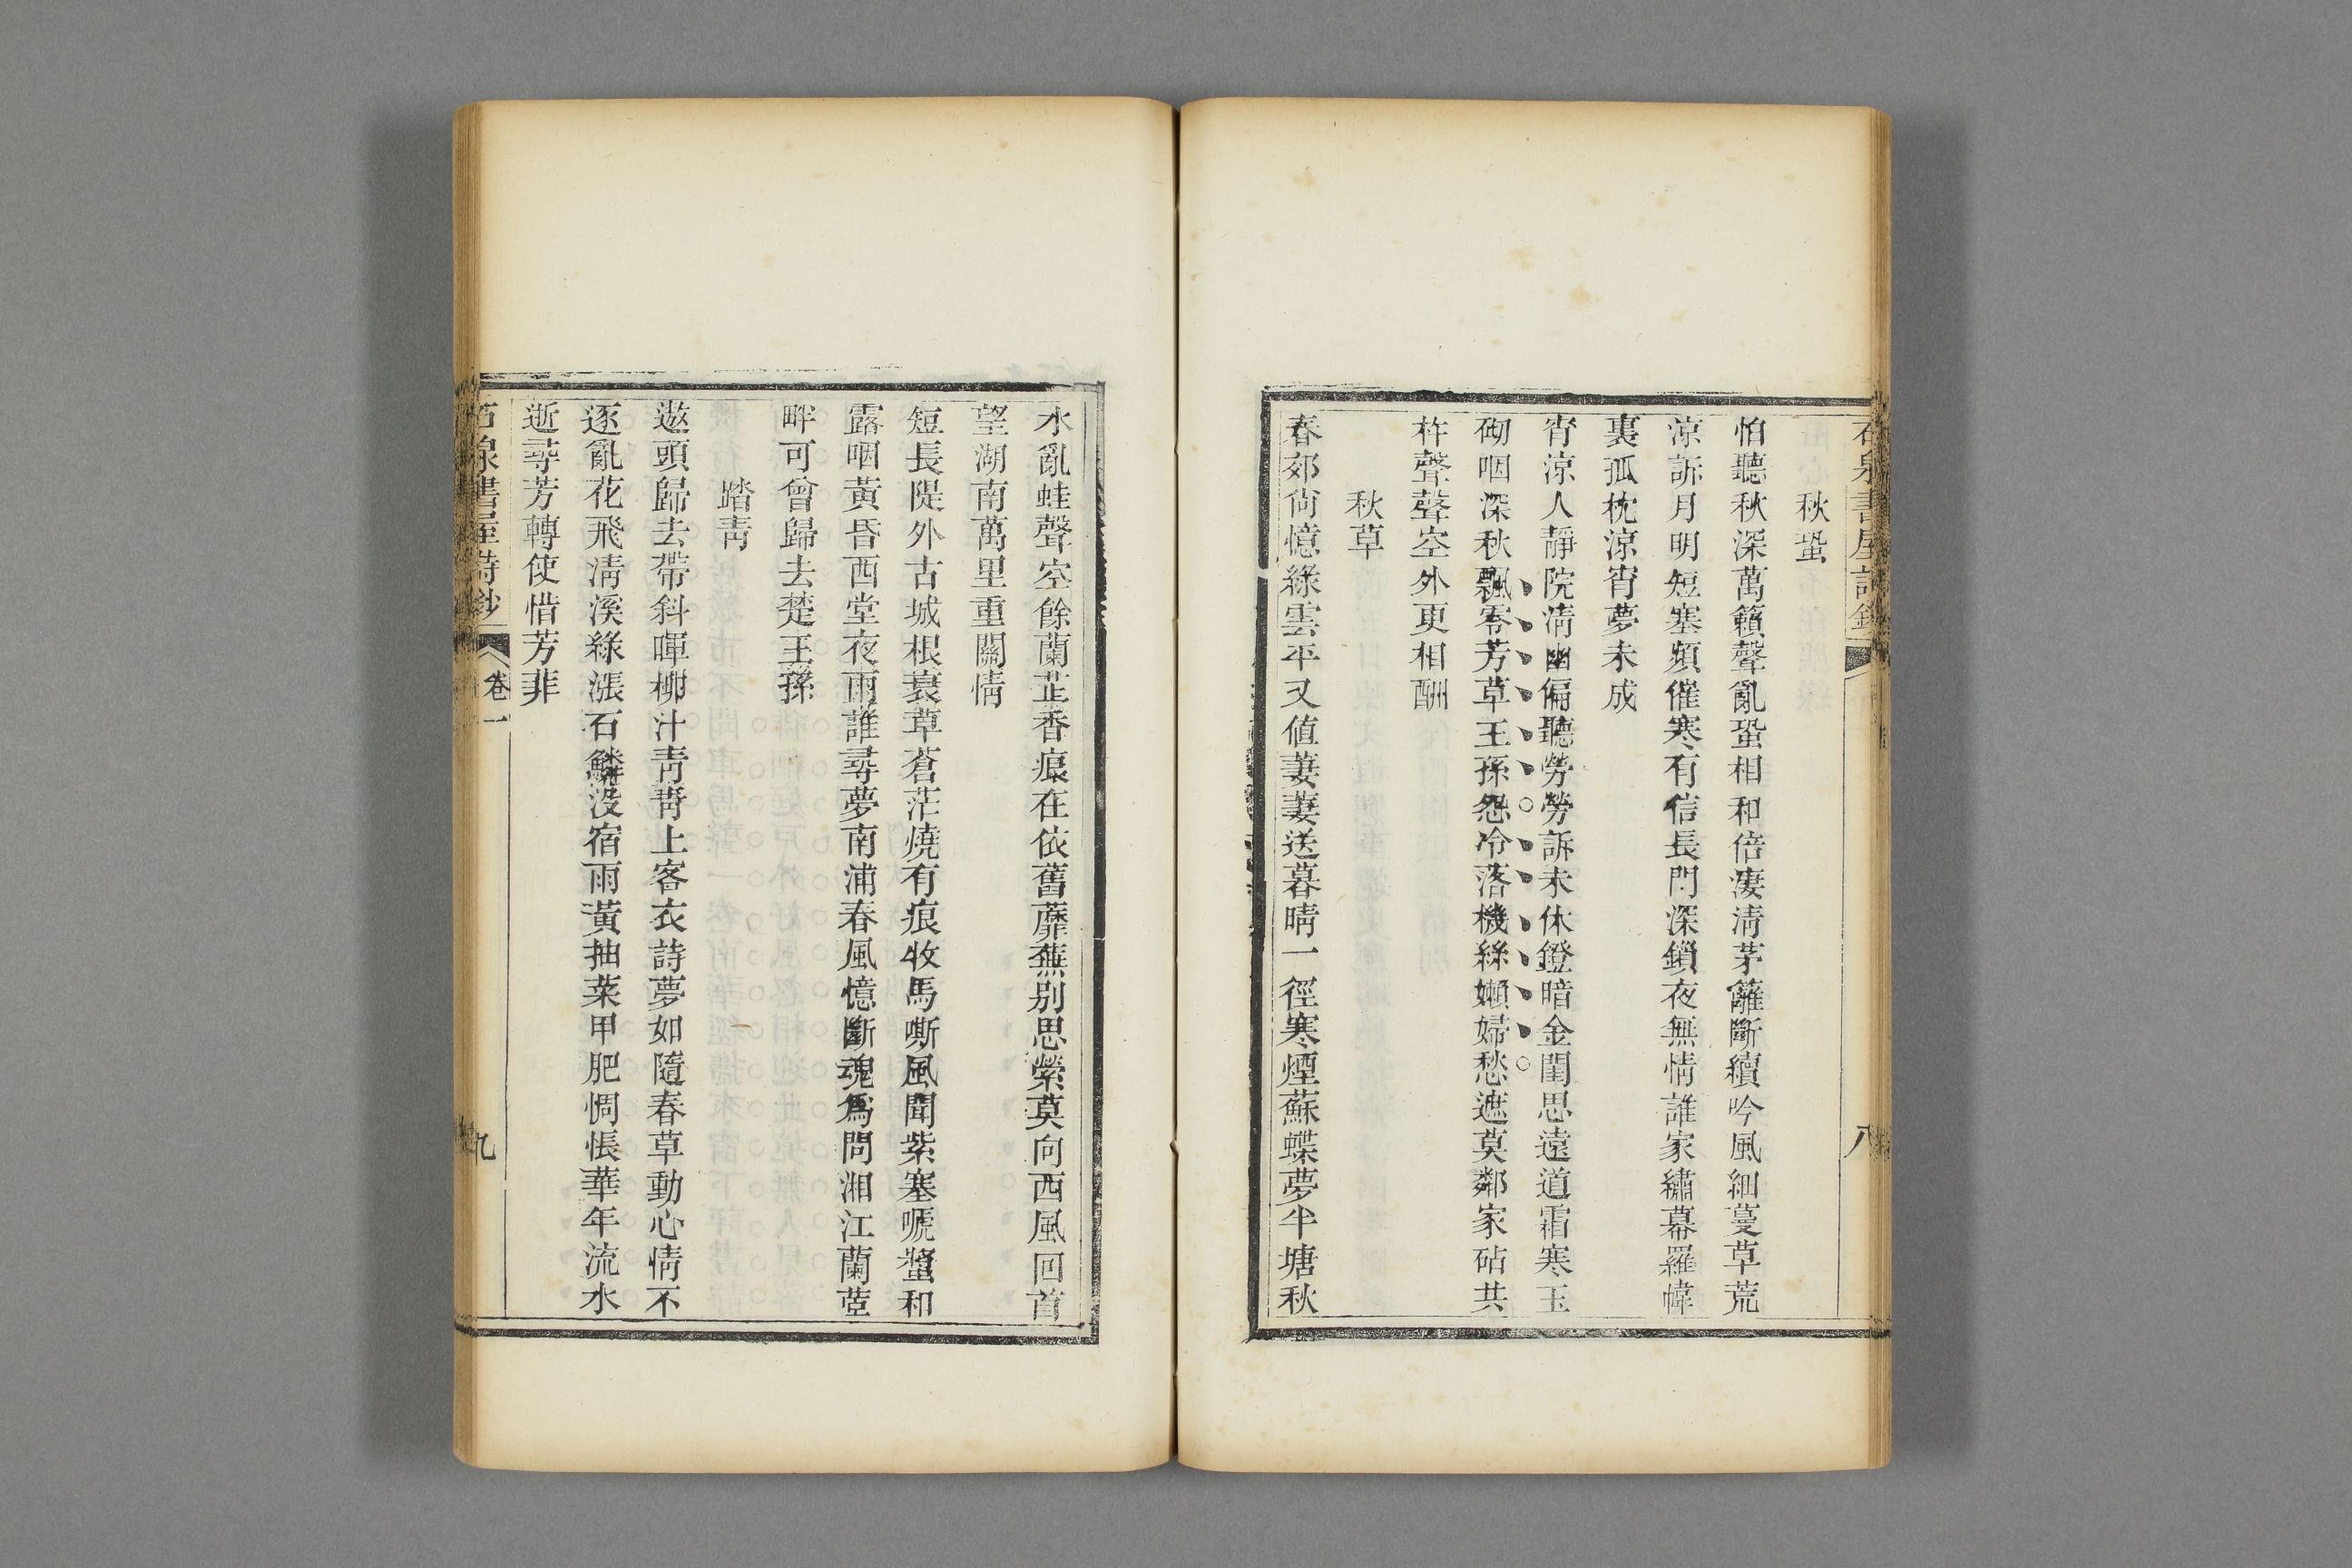 石泉書屋詩鈔
八
秋蛩
怕聽秋深萬籟聲亂蛩相和倍淒淸茅籬斷續吟風細蔓草荒
涼訴月明短塞頻催寒有信長門深鎖夜無情誰家繡幕羅幃
裏孤枕涼宵夢未成
宵涼人靜院淸幽偏聽勞勞訴未休鐙暗金閨思遠道霜寒玉
砌咽深秋飄零芳草王孫怨冷落機絲嬾婦愁遮莫鄰家砧共
杵聲聲空外更相酬
秋草
春郊尙憶綠雲平又値萋萋送暮晴一徑寒煙蘇蝶夢半塘秋
水亂蛙聲空餘蘭芷香痕在依舊蘼蕪別思縈莫向西風回首
望湖南萬里重關情
短長隄外古城根衰草蒼茫燒有痕牧馬嘶風聞紫塞嗁螿和
露咽黃昏西堂夜雨誰尋夢南浦春風憶斷魂爲問湘江蘭茝
畔可曾歸去楚王孫
踏靑
遨頭歸去帶斜暉柳汁靑靑上客衣詩夢如隨春草動心情不
逐亂花飛淸溪綠漲石鱗沒宿雨黃抽菜甲肥惆悵華年流水
逝尋芳轉使惜芳菲
石泉書屋詩鈔
卷一
九